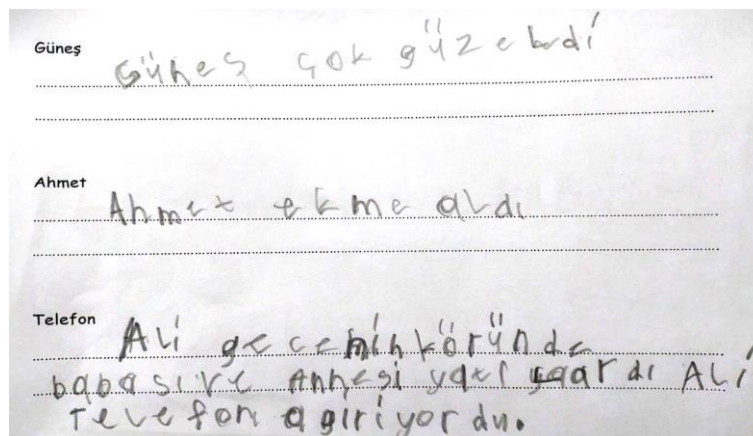 Güneş
Güneş çok güzeldi
Ahmet
Ahmet ekme aldı
Telefon
Ali geceninköründe
babasıve Annesi Ali
Telefon agiriyordu.